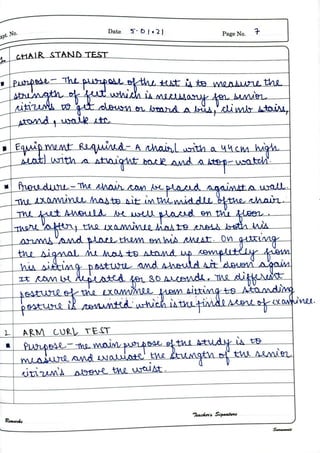 Expt. No.
Date 5.01.21
Page No. 7
1. CHAIR STAND TEST
Purpose - The purpose of the test is to measure the
strength of feet which is necessary for senior
citizens to get down or board a bus, climb stairs,
stand, walk etc.
Equipment Required - A chair ( with a 44cm high
seat) with a straight back and a stop-watch.
Procedure - The chair can be placed against a wall.
The examinee has to sit in the middle of the chair.
The feet should be well placed on the floor.
There after, the examinee has to cross both his
arms and place them on his chest. On getting
the signal he has to stand up completely from
his sitting posture and should sit down again.
It can be repeated for 30 seconds. The different
posture of the examinee from sitting to standing
posture is counted which is the final score of examinee.
2. ARM CURL TEST
Purpose - The main purpose of the study is to
measure and evaluate the strength of the senior
citizen's above the waist.
Teacher's Signature
Remarks